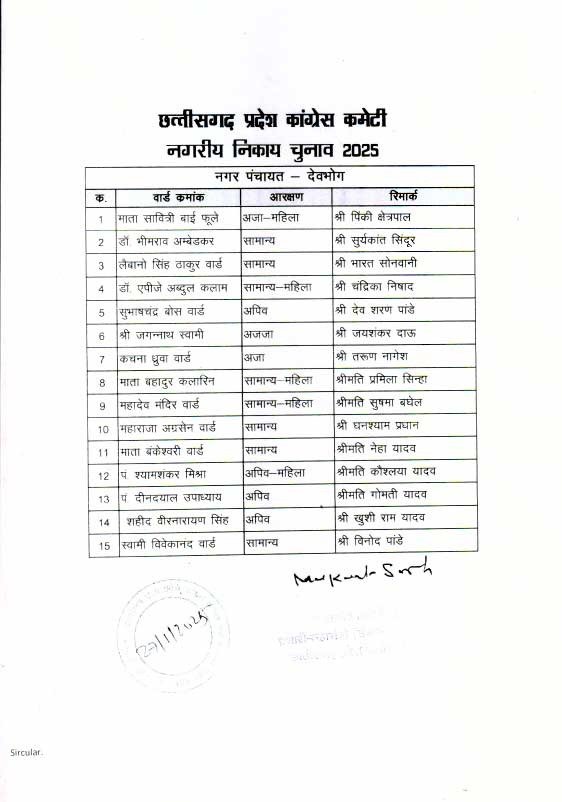 छत्तीसगढ़ प्रदेश कांग्रेस कमेटी
नगरीय निकाय चुनाव 2025
नगर पंचायत – देवभोग
क. वार्ड कमांक आरक्षण रिमार्क
1 माता सावित्री बाई फूले अजा–महिला श्री पिंकी क्षेत्रपाल
2 डॉ. भीमराव अम्बेडकर सामान्य श्री सुर्यकांत सिंदूर
3 लैबानो सिंह ठाकुर वार्ड सामान्य श्री भारत सोनवानी
4 डॉ. एपीजे अब्दुल कलाम सामान्य–महिला श्री चंद्रिका निषाद
5 सुभाषचंद्र बोस वार्ड अपिव श्री देव शरण पांडे
6 श्री जगन्नाथ स्वामी अजजा श्री जयशंकर दाऊ
7 कचना ध्रुवा वार्ड अजा श्री तरूण नागेश
8 माता बहादुर कलारिन सामान्य–महिला श्रीमति प्रमिला सिन्हा
9 महादेव मंदिर वार्ड सामान्य–महिला श्रीमति सुषमा बघेल
10 महाराजा अग्रसेन वार्ड सामान्य श्री घनश्याम प्रधान
11 माता बंकेश्वरी वार्ड सामान्य श्रीमति नेहा यादव
12 पं. श्यामशंकर मिश्रा अपिव–महिला श्रीमति कौश्लया यादव
13 पं. दीनदयाल उपाध्याय अपिव श्रीमति गोमती यादव
14 शहीद वीरनारायण सिंह अपिव श्री खुशी राम यादव
15 स्वामी विवेकानंद वार्ड सामान्य श्री विनोद पांडे
27/1/2025
Sircular.